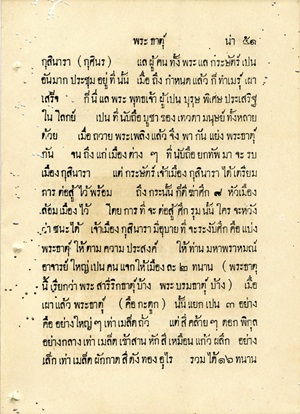 พระ ธาตุ์ น่า ๕๑
กุสินารา (กุศินร) แล ผู้ คน ทั้ง พระ แล กระษัตร์ เปน
อันมาก ประชุม อยู่ ที่ นั้น เมื่อ ถึง กำหนด แล้ว ก็ ทำเมรุ เผา
เสร็จ ก็ นี่ แล พระ พุทธเจ้า ผู้ เปน บุรุษ พิเศษ ประเสริฐ
ใน โลกย์ เปน ที่ นับถือ บูชา ของ เทวดา มนุษย์ ทั้งหลาย
ด้วย เมื่อ ถวาย พระเพลิง แล้ว จึง พา กัน แย่ง พระธาตุ์
กัน จน ถึง แก่ เมือง ต่าง ๆ ที่ นับถือ ยกทัพ มา จะ รบ
เมือง กุสินารา แต่ กระษัตร์ เจ้าเมือง กุสินารา ได้ เตรียม
การ ต่อสู้ ไว้ พร้อม ถึง กระนั้น ก็ดี ข่าศึก ๗ หัวเมือง
ล้อม เมือง ไว้ โดย การ ที่ จะ ต่อสู้ ศึก รุม นั้น ใคร จะหวัง
ว่า ชนะ ได้ เจ้าเมือง กุสินารา มี อุบาย ที่ จะ ระงับ ศึก คือ แบ่ง
พระธาตุ์ ให้ ตาม ความ ประสงค์ ให้ ท่าน มหาพราหมณ์
อาจารย์ ใหญ่ เปน คน แจก ให้ เมือง ละ ๒ ทนาน (พระธาตุ
นี้ เรียกว่า พระ สารีริกธาตุ์ บ้าง พระ บรมธาตุ์ บ้าง) เมื่อ
เผา แล้ว พระธาตุ์ (คือ กะดูก) นั้น แยก เปน ๓ อย่าง
คือ อย่าง ใหญ่ ๆ เท่า เมล็ด ถั่ว แต่ สี คล้าย ๆ ดอก พิกุล
อย่าง กลาง เท่า เมล็ด เข้าสาน หัก สี เหมือน แก้ว ผลึก อย่าง
เล็ก เท่า เมล็ด ผักกาด สี ดัง ทอง อุไร รวม ได้ ๑๖ ทนาน